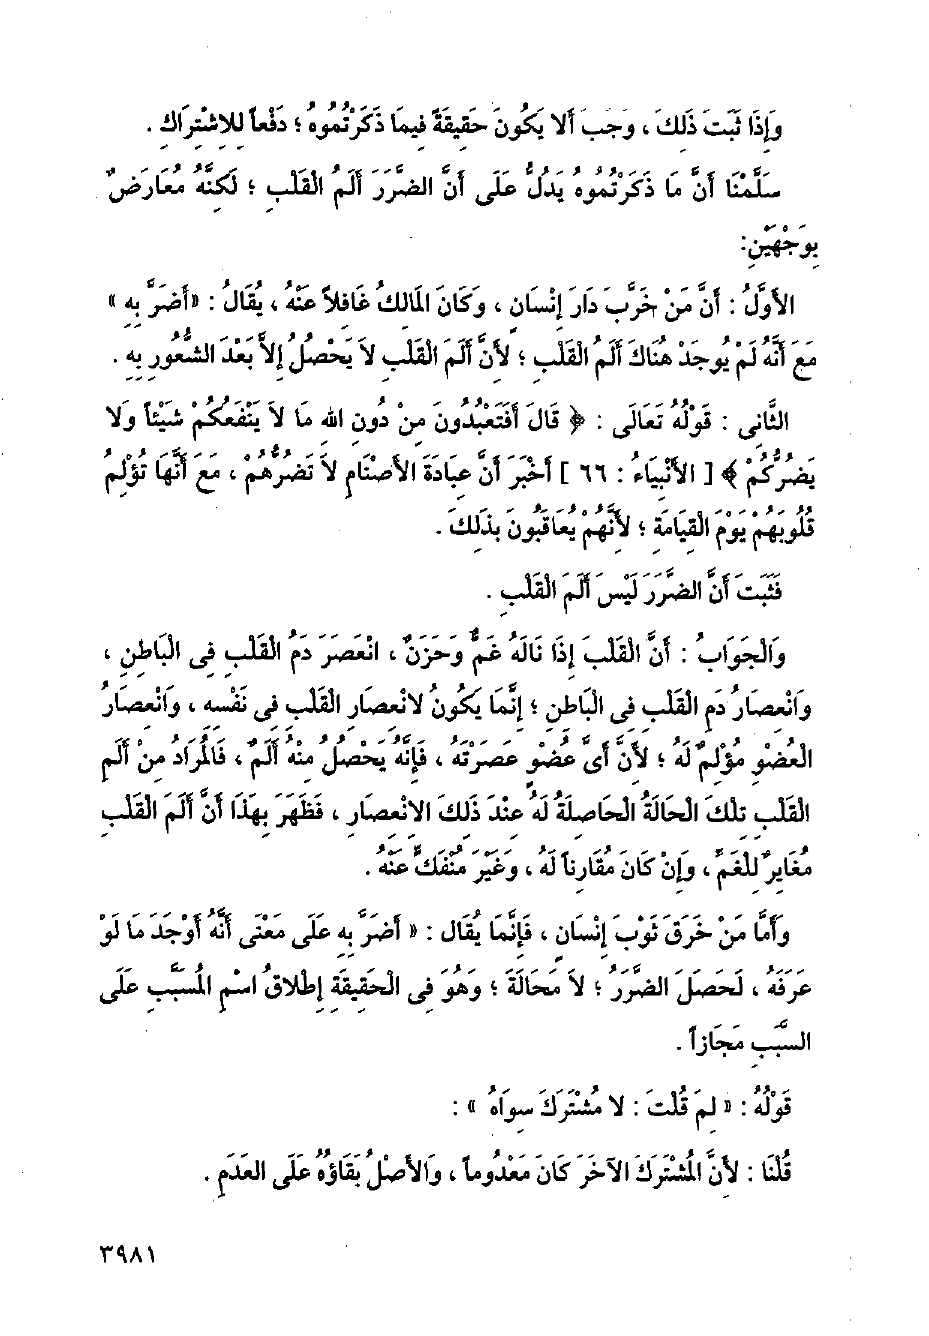 وَإِذَا ثَبَتَ ذَلِكَ ، وَجَبَ أَلا يَكُونَ حَقِيقَةً فِيمَا ذَكَرْتُمُوهُ ؛ دَفْعاً لِلاِشْتِرَاكِ .
سَلَّمْنَا أَنَّ مَا ذَكَرْتُمُوهُ يَدُلُّ عَلَى أَنَّ الضَّرَرَ أَلَمُ الْقَلْبِ ؛ لَكِنَّهُ مُعَارَضٌ
بِوَجْهَيْنِ:
الأَوَّلُ : أَنَّ مَنْ خَرَّبَ دَارَ إِنْسَانٍ ، وَكَانَ الْمَالِكُ غَافِلاً عَنْهُ ، يُقَالُ : «أَضَرَّ بِهِ »
مَعَ أَنَّهُ لَمْ يُوجَدْ هُنَاكَ أَلَمُ الْقَلْبِ ؛ لأَنَّ أَلَمَ الْقَلْبِ لاَ يَحْصُلُ إِلاَّ بَعْدَ الشُّعُورِ بِهِ .
الثَّانِى : قَوْلُهُ تَعَالَى : ﴿ قَالَ أَفَتَعْبُدُونَ مِنْ دُونِ اللهِ مَا لاَ يَنْفَعُكُمْ شَيْئاً وَلا
يَضُرُّكُمْ ﴾ [ الأَنْبِيَاءُ : ٦٦ ] أَخْبَرَ أَنَّ عِبَادَةَ الأَصْنَامِ لاَ تَضُرُّهُمْ ، مَعَ أَنَّهَا تُؤْلِمُ
قُلُوبَهُمْ يَوْمَ الْقِيَامَةِ ؛ لأَنَّهُمْ يُعَاقَبُونَ بِذَلِكَ .
فَثَبَتَ أَنَّ الضَّرَرَ لَيْسَ أَلَمَ الْقَلْبِ .
وَالْجَوَابُ : أَنَّ الْقَلْبَ إِذَا نَالَهُ غَمٌّ وَحَزَنٌ ، انْعَصَرَ دَمُ الْقَلْبِ فِى الْبَاطِنِ ،
وَانْعِصَارُ دَمِ الْقَلْبِ فِى الْبَاطِنِ ؛ إِنَّمَا يَكُونُ لانْعِصَارِ الْقَلْبِ فِى نَفْسِهِ ، وَانْعِصَارُ
الْعُضْوِ مُؤْلِمٌ لَهُ ؛ لأَنَّ أَىَّ عُضْوٍ عَصَرْتَهُ ، فَإِنَّهُ يَحْصُلُ مِنْهُ أَلَمٌ ، فَالْمُرَادُ مِنْ أَلَمِ
الْقَلْبِ تِلْكَ الْحَالَةُ الْحَاصِلَةُ لَهُ عِنْدَ ذَلِكَ الانْعِصَارِ ، فَظَهَرَ بِهَذَا أَنَّ أَلَمَ الْقَلْبِ
مُغَايِرٌ لِلْغَمِّ ، وَإِنْ كَانَ مُقَارِناً لَهُ ، وَغَيْرَ مُنْفَكٍّ عَنْهُ .
وَأَمَّا مَنْ خَرَقَ ثَوْبَ إِنْسَانٍ ، فَإِنَّمَا يُقَالُ : « أَضَرَّ بِهِ عَلَى مَعْنَى أَنَّهُ أَوْجَدَ مَا لَوْ
عَرَفَهُ ، لَحَصَلَ الضَّرَرُ ؛ لاَ مَحَالَةَ ؛ وَهُوَ فِى الْحَقِيقَةِ إِطْلاَقُ اسْمِ الْمُسَبَّبِ عَلَى
السَّبَبِ مَجَازاً .
قَوْلُهُ : « لِمَ قُلْتَ : لا مُشْتَرَكَ سِوَاهُ » :
قُلْنَا : لأَنَّ الْمُشْتَرَكَ الآخَرَ كَانَ مَعْدُوماً ، وَالأَصْلُ بَقَاؤُهُ عَلَى الْعَدَمِ .
٣٩٨١